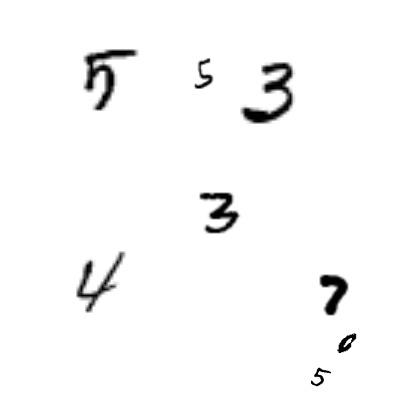 5 5 3
3
4 7
0
5